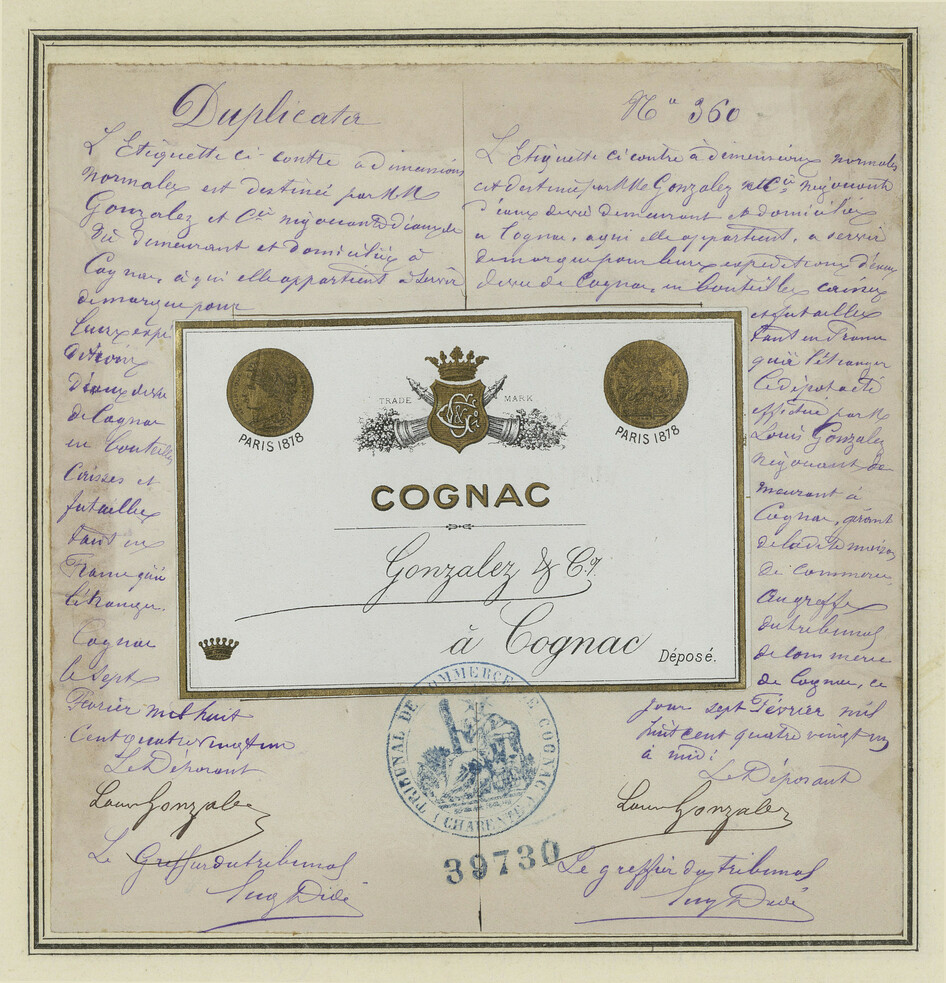 Duplicata
L'Etiquette ci-contre à dimensions
normales est destinée par MM
Gonzalez et Cie négociants d'eaux de
vie demeurant et domiciliés à
Cognac, à qui elle appartient à servir
de marque pour
leurs expé
ditions
d'eaux de vie
de Cognac
en bouteilles
Caisses et
futailles
tant en
France qu'à
l'étranger.
Cognac
le sept
Février mil huit
cent quatre vingt un
Le Déposant
Louis Gonzalez
Le Greffier du tribunal
Eug Didé
No 360
L'Etiquette ci contre à dimensions normales
est destinée par MM Gonzalez et Cie négociants
d'eaux de vie demeurant et domiciliés
à Cognac, à qui elle appartient, à servir
de marque pour leurs expeditions d'eaux
de vie de Cognac, en bouteilles caisses
et futailles
tant en France
qu'à l'étranger
Ce dépot a été
effectué par M
Louis Gonzalez
négociant de
meurant à
Cognac, gérant
de la dite maison
de commerce
au greffe
du tribunal
de commerce
de Cognac, ce
jour sept Février mil
huit cent quatre vingt un
à midi
Le Déposant
Louis Gonzalez
Le greffier du tribunal
Eug Didé
TRADE MARK
PARIS 1878
PARIS 1878
COGNAC
Gonzalez & Co.
à Cognac
Déposé.
TRIBUNAL DE COMMERCE DE COGNAC
CHARENTE
39730